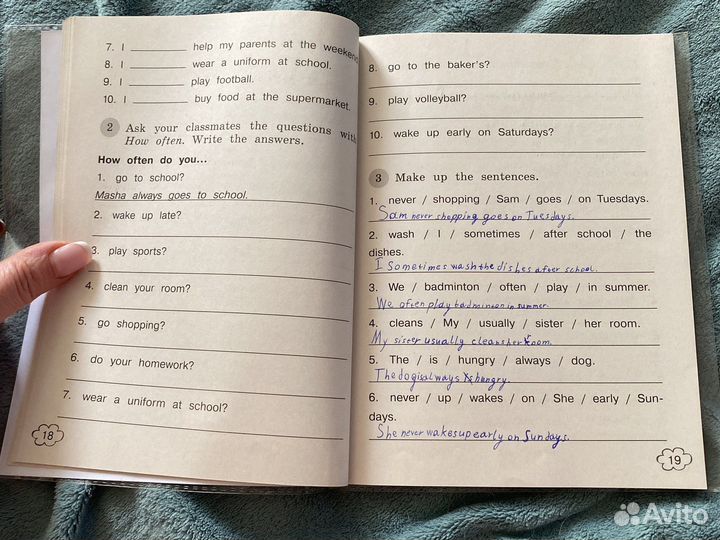 7. I ________ help my parents at the weekend
8. I ________ wear a uniform at school.
9. I ________ play football.
10. I ________ buy food at the supermarket.
2 Ask your classmates the questions with
How often. Write the answers.
How often do you...
1. go to school?
Masha always goes to school.
2. wake up late?
3. play sports?
4. clean your room?
5. go shopping?
6. do your homework?
7. wear a uniform at school?
18
8. go to the baker's?
9. play volleyball?
10. wake up early on Saturdays?
3 Make up the sentences.
1. never / shopping / Sam / goes / on Tuesdays.
Sam never shopping goes on Tuesdays.
2. wash / I / sometimes / after school / the
dishes.
I sometimes wash the dishes after school.
3. We / badminton / often / play / in summer.
We often play badminton in summer.
4. cleans / My / usually / sister / her room.
My sister usually cleans her room.
5. The / is / hungry / always / dog.
The dog is always hungry.
6. never / up / wakes / on / She / early / Sun-
days.
She never wakes up early on Sundays.
19
Avito